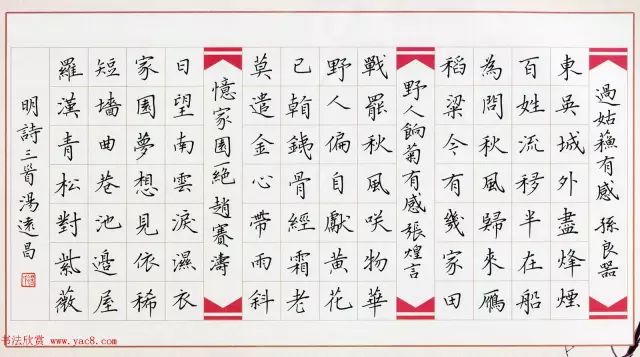 過姑蘓有感 孫良器
東吳城外盡烽煙
百姓流移半在船
為問秋風歸來鴈
稻粱今有幾家田
野人餉菊有感張煌言
戰罷秋風咲物華
野人偏自獻黃花
已翰銕骨經霜老
莫遣金心帶雨斜
憶家園一絕趙賽濤
日望南雲淚濕衣
家園夢想見依稀
短墻曲巷池邊屋
羅漢青松對紫薇
明詩三首湯遠昌
书法欣赏 www.yac8.com